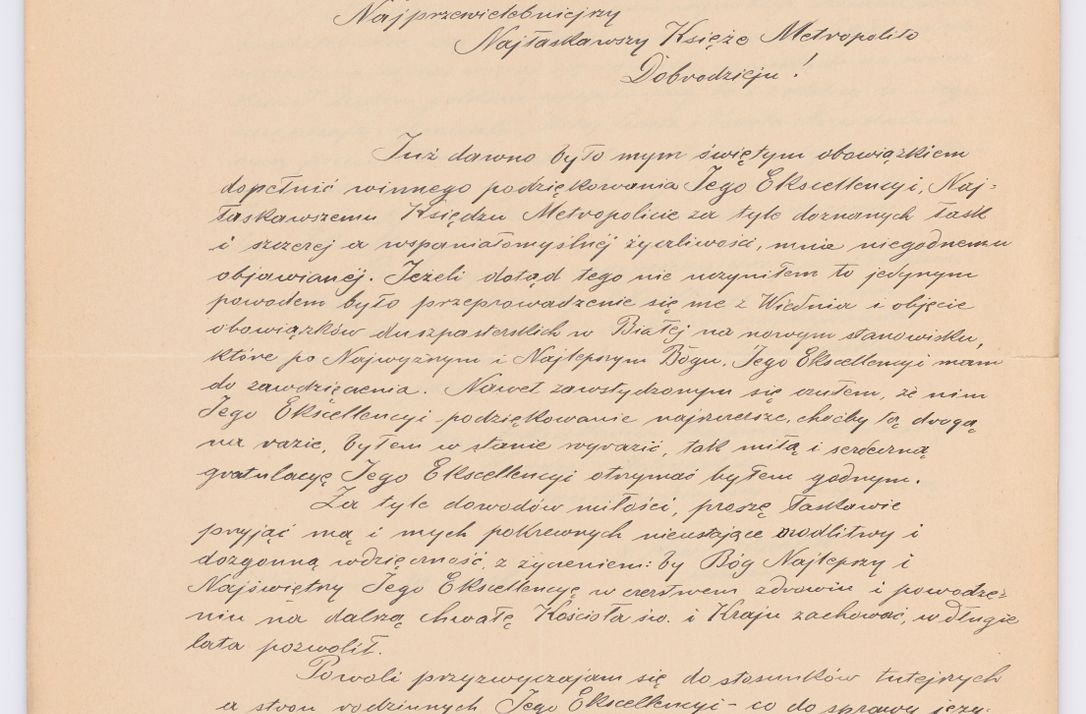 Najprzewielebniejszy
Najłaskawszy Księże Metropolito
Dobrodzieju!
Już dawno było mym świętym obowiązkiem
dopełnić winnego podziękowania Jego Ekscellencyi, Naj=
łaskawszemu Księdzu Metropolicie za tyle doznanych łask
i szczerej a wspaniałomyślnéj życzliwości, mnie niegodnemu
objawianéj. Jeżeli dotąd tego nie uczyniłem to jedynym
powodem było przeprowadzenie się me z Wiednia i objęcie
obowiązków duszpasterskich w Białej na nowym stanowisku,
które po Najwyższym i Najlepszym Bogu, Jego Ekscellencyi mam
do zawdzięczenia. Nawet zawstydzonym się czułem, że nim
Jego Ekscellencyi podziękowanie najszczersze, choćby tą drogą
na razie, byłem w stanie wyrazić, tak miłą i serdeczną
gratulacyę Jego Ekscellencyi otrzymać byłem godnym.
Za tyle dowodów miłości, proszę łaskawie
przyjąć mą i mych pokrewnych nieustające modlitwy i
dozgonną wdzięczność, z życzeniem: by Bóg Najlepszy i
Najświętszy Jego Ekscellencyę w czerstwem zdrowiu i powodze=
niu na dalszą chwałę Kościoła św. i Kraju zachować, w długie
lata pozwolił.
Powoli przyzwyczajam się do stosunków tutejszych
a stron rodzinnych Jego Ekscellencyi - co do sprawy języ=